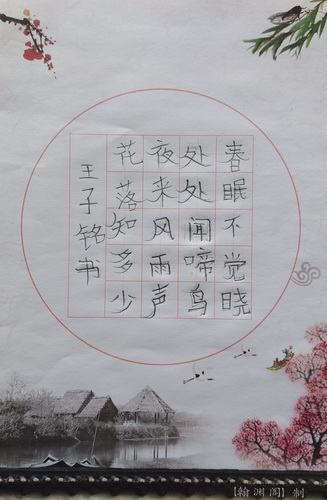 春眠不觉晓
处处闻啼鸟
夜来风雨声
花落知多少
王子铭书
【翰渊阁】制